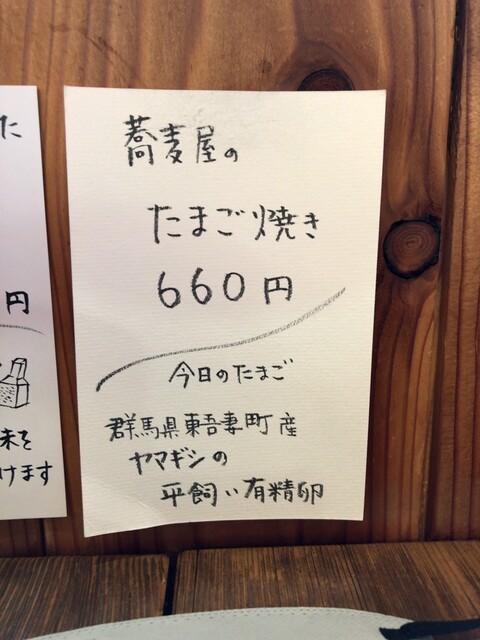 蕎麦屋の
たまご焼き
660円
今日のたまご
群馬県東吾妻町産
ヤマギシの
平飼い有精卵
た
円
末を
けます